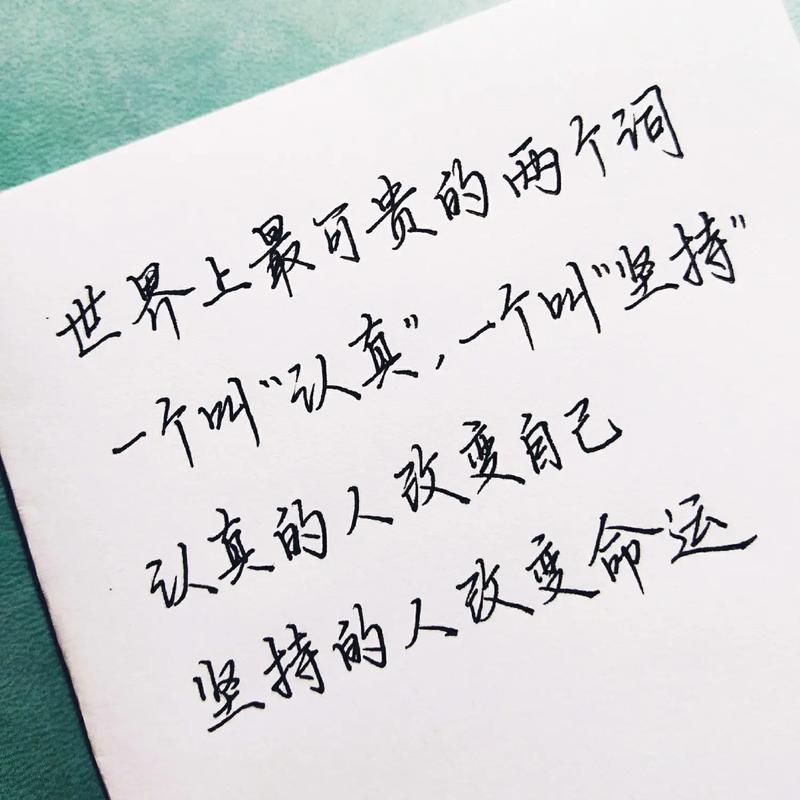 世界上最可贵的两个词
一个叫“认真”,一个叫“坚持”
认真的人改变自己
坚持的人改变命运